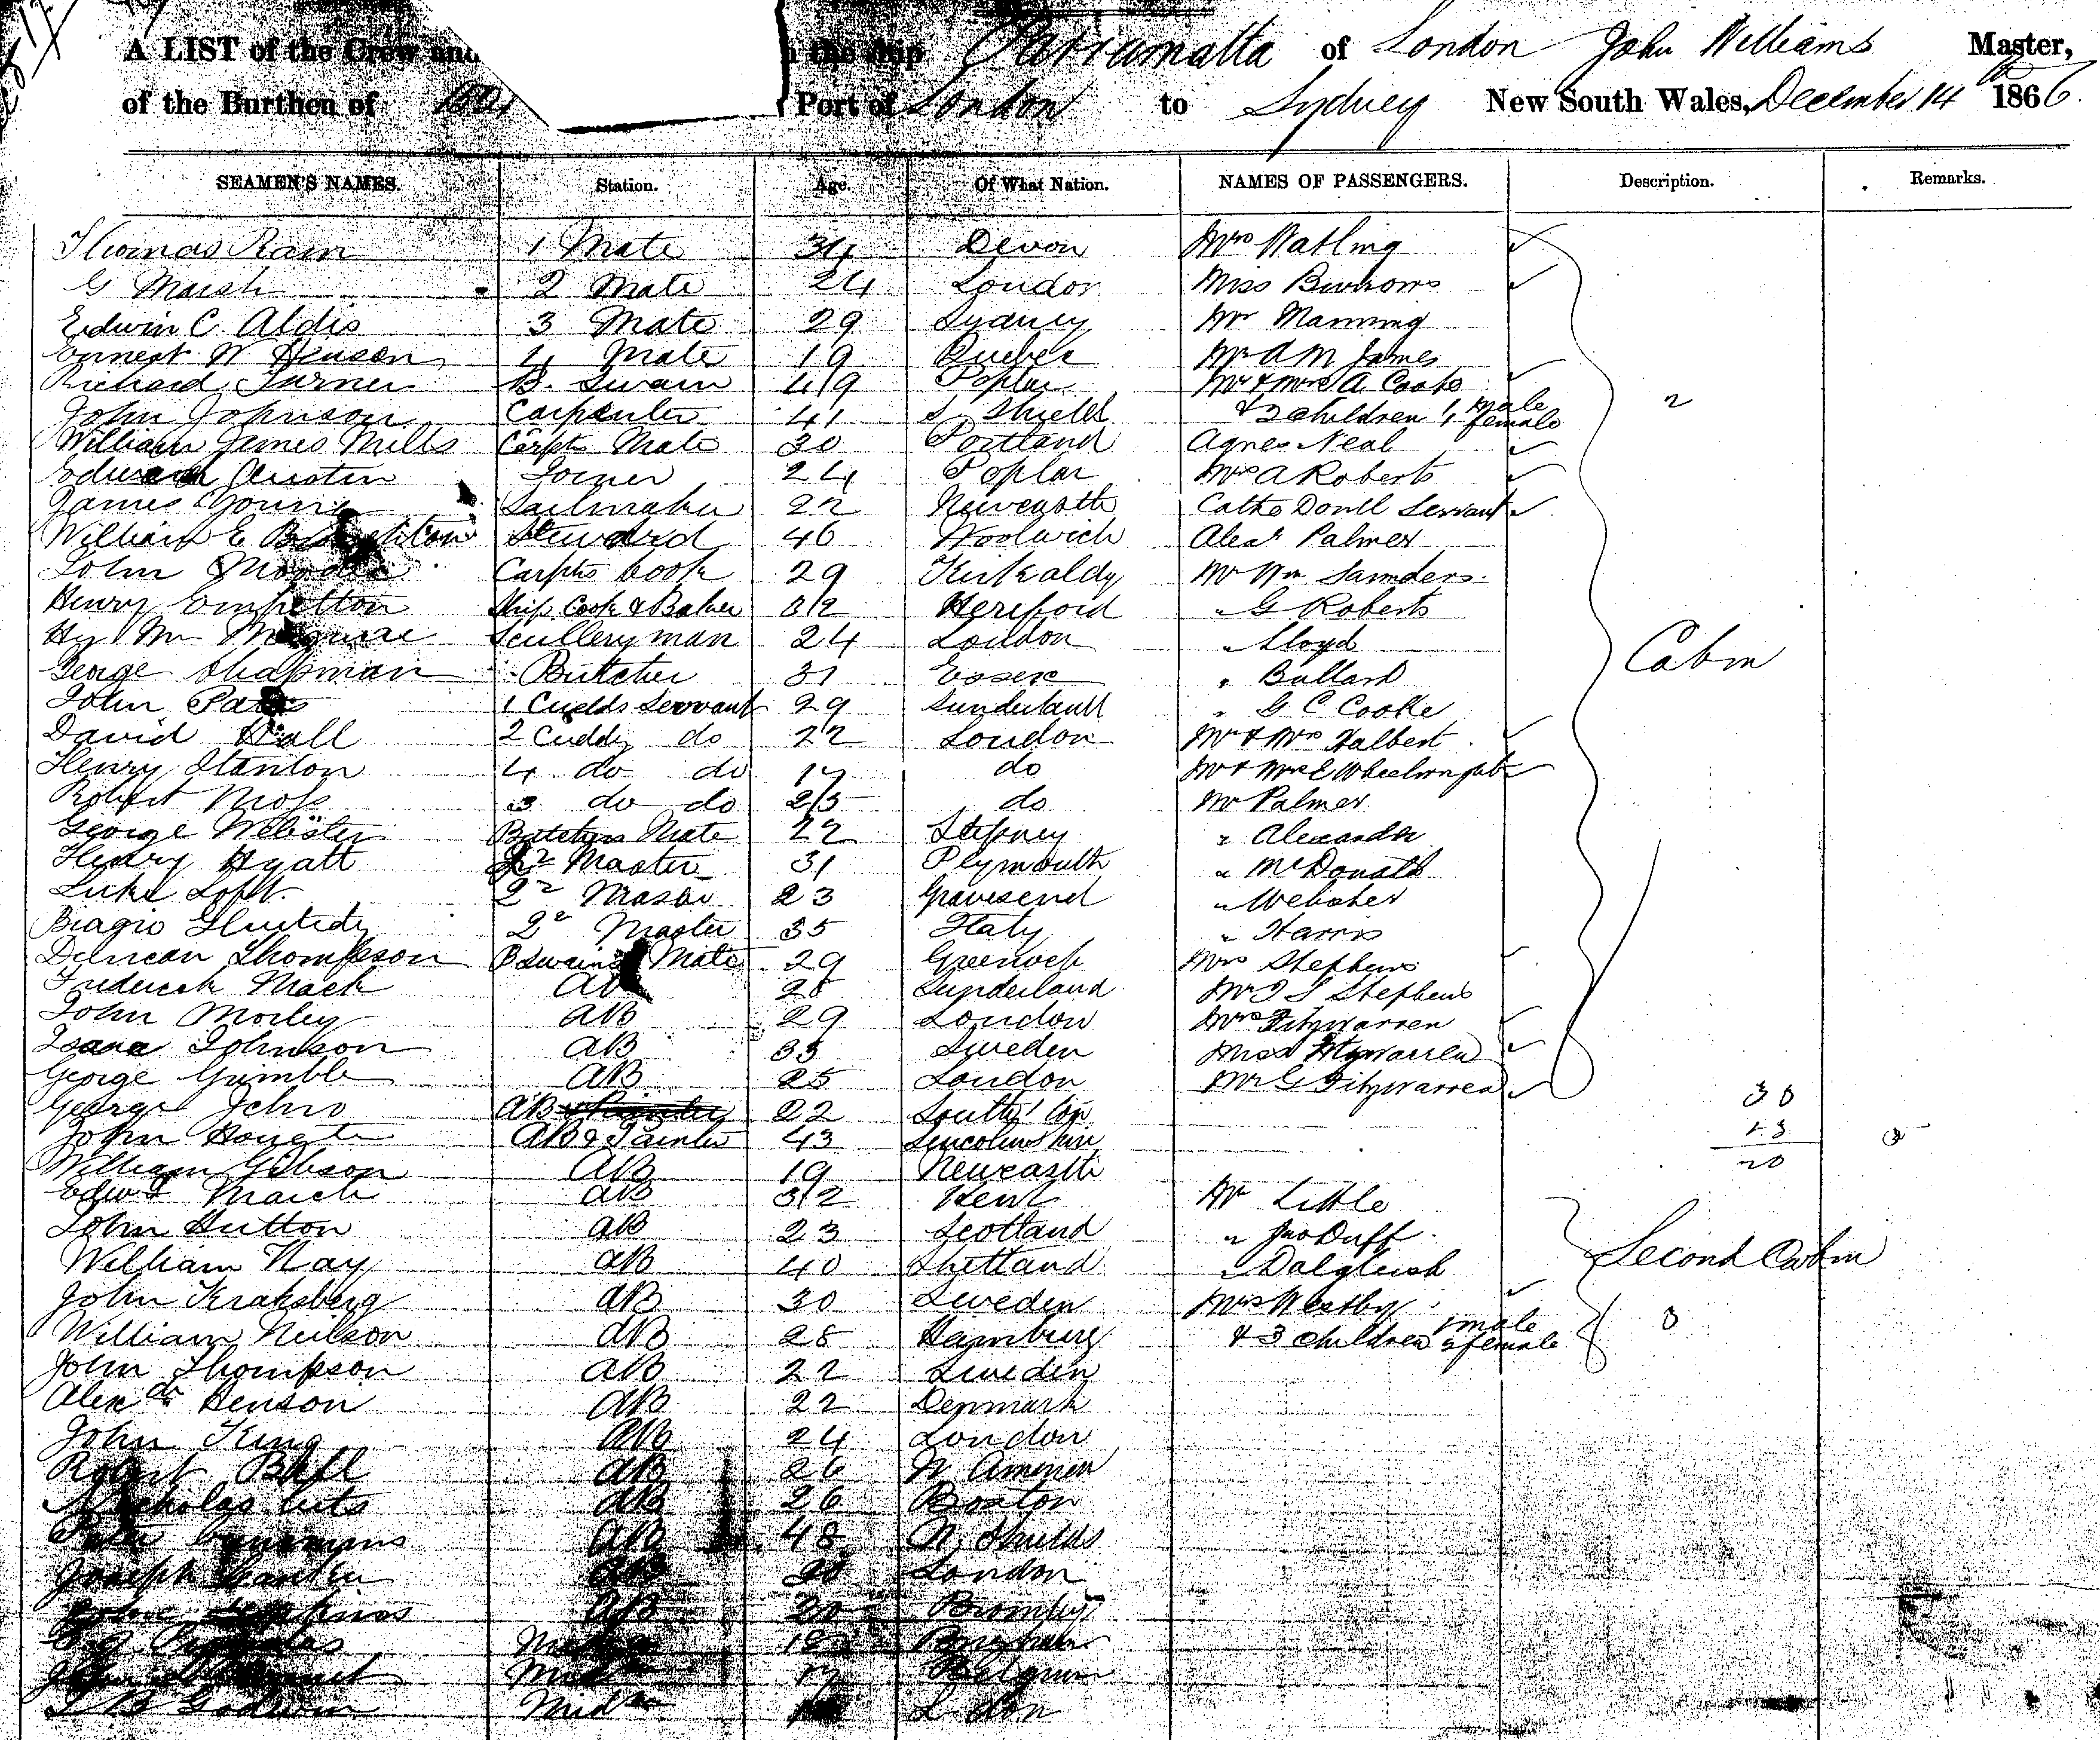 A LIST of the Crew and the ship Parramatta of London John Williams Master,
of the Burthen of Port of London to Sydney New South Wales, December 14th 1866.
SEAMEN'S NAMES. Station. Age. Of What Nation. NAMES OF PASSENGERS. Description. Remarks.
Thomas Rain 1 Mate 34 Devon Mrs Watling
G Marsh 2 Mate 24 London Miss Burrows
Edwin C. Aldis 3 Mate 29 Sydney Mr Manning
Ernest W Henson 4 Mate 19 Quebec Mr A M James
Richard Turner B. Swain 49 Poplar Mr & Mrs A Cooke
John Johnson Carpenter 41 S Shield & 2 children 1 male 1 female 2
William James Mills Carptr Mate 30 Portland Agnes Neal
Edward Austin Joiner 24 Poplar Mrs A Roberts
James Young Sailmaker 22 Newcastle Cathe Dowll Servant
William E Steward 46 Woolwich Alexr Palmer
John Carpts Cook 29 Kirkaldy Mr Wm Sanders
Henry Empelton Ship Cook & Baker 32 Hereford " G Roberts
Hy Wm Scullery man 24 London " Lloyd
George Chapman Butcher 31 Essex " Bullard Cabin
John 1 Cudds Servant 29 Sunderland " G C Cooke
David Hall 2 Cuddy do 22 London Mr & Mrs Halbert
Henry Stanton 4 do do 17 do Mr & Mrs E Wheelwright
Robert Moss 3 do do 25 do Mr Palmer
George Webster Butchers Mate 22 Stepney " Alexander
Henry Hyatt Qr Master 31 Plymouth " McDonald
Luke Loft Qr Master 23 Gravesend " Webster
Biagio Qr Master 35 Italy " Harris
Duncan Thompson B Swains Mate 29 Greenwich Mrs Stephens
Frederick Mack AB 28 Sunderland Mr J S Stephens
John Morley AB 29 London Mrs Fitzwarren
Isaac Johnson AB 35 Sweden Miss Fitzwarren
George Grimble AB 25 London Mr G Fitzwarren
George John AB 22 30
John AB & Painter 43 Lincolnshire
William Gibson AB 19 Newcastle
Edwd March AB 32 Kent Mr Little
John Hutton AB 23 Scotland " Jno Duff
William Hay AB 40 Shetland " Dalgleish Second Cabin
John Kraksberg AB 30 Sweden Mrs Westby
William Neilson AB 28 Hamburg & 3 children 1 male 2 female
John Thompson AB 22 Sweden
Alexdr Henson AB 22 Denmark
John King AB 24 London
Robert Ball AB 26 N America
Nicholas AB 26 Boston
AB 48 N. Shields
Joseph AB London
AB 20 Bromley
John Mid 17 Belgium
Godwin Mid